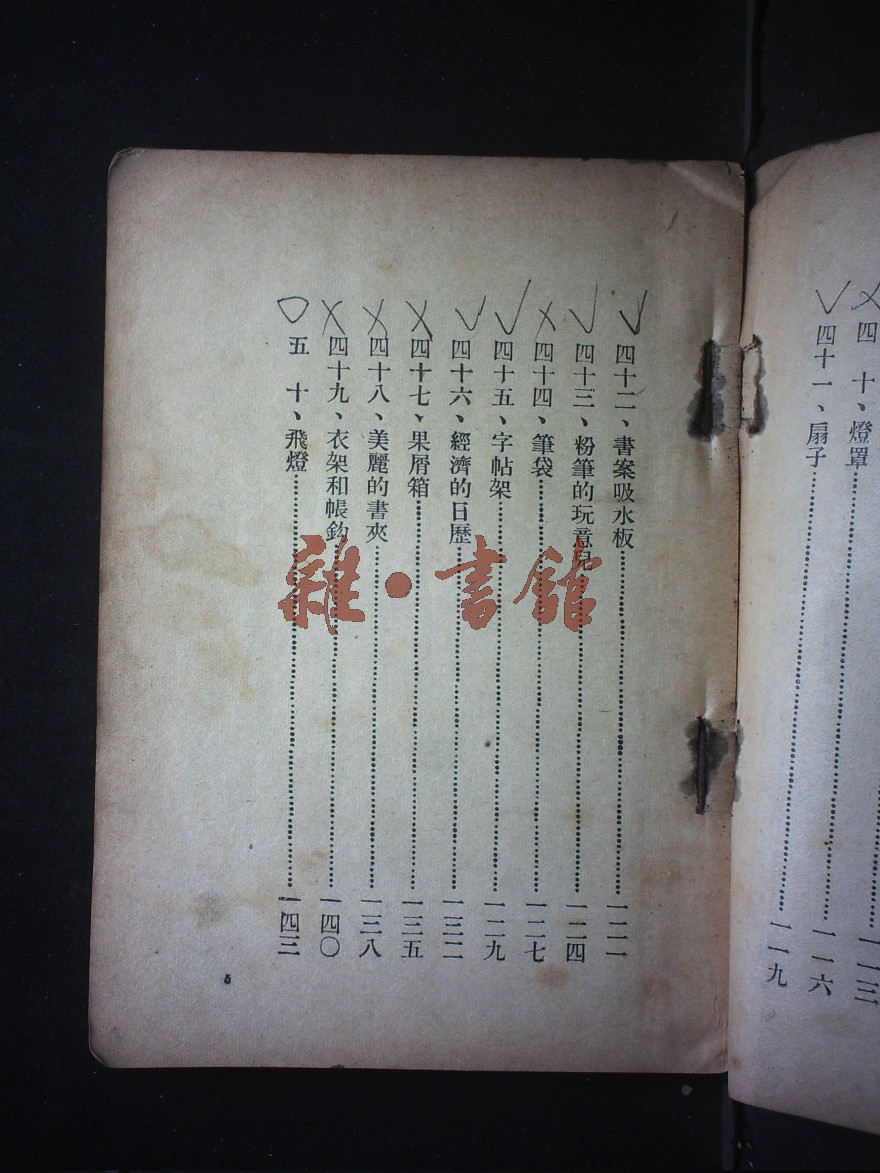 一一三
四　十、燈罩……………………一一六
四十一、扇子……………………一一九
四十二、書案吸水板……………………一二一
四十三、粉筆的玩意兒……………………一二四
四十四、筆袋……………………一二七
四十五、字帖架……………………一二九
四十六、經濟的日歷……………………一三二
四十七、果屑箱……………………一三五
四十八、美麗的書夾……………………一三八
四十九、衣架和帳鈎……………………一四〇
五　十、飛燈……………………一四三
5
雜·書館